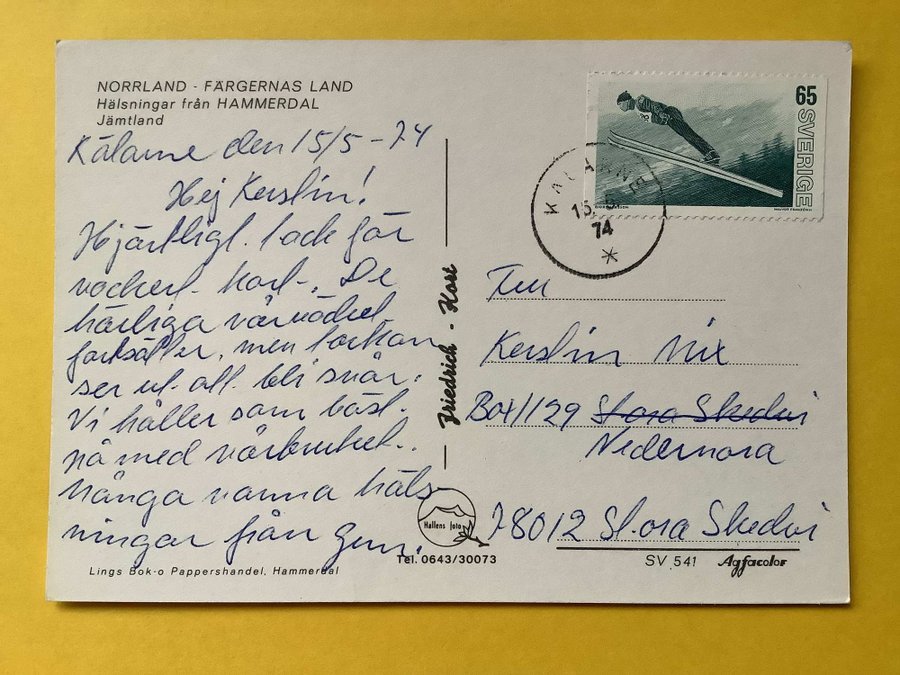 NORRLAND - FÄRGERNAS LAND
Hälsningar från HAMMERDAL
Jämtland
Kälarne den 15/5-74
Hej Kerstin!
Hjärtligt tack för
vackert kort. De
härliga vårvädret
fortsätter, men torkan
ser ut att bli svår.
Vi håller som bäst
på med vårbruket.
Många varma häls-
ningar från Gun.
Lings Bok-o Pappershandel, Hammerdal
Friedrich - Kort
Hallens foto
Tel. 0643/30073
65
SVERIGE
KÄLARNE
15
74
Kerstin Nix
Box 1129 Stora Skedvi
Nedernora
78012 Stora Skedvi
SV 541 Agfacolor